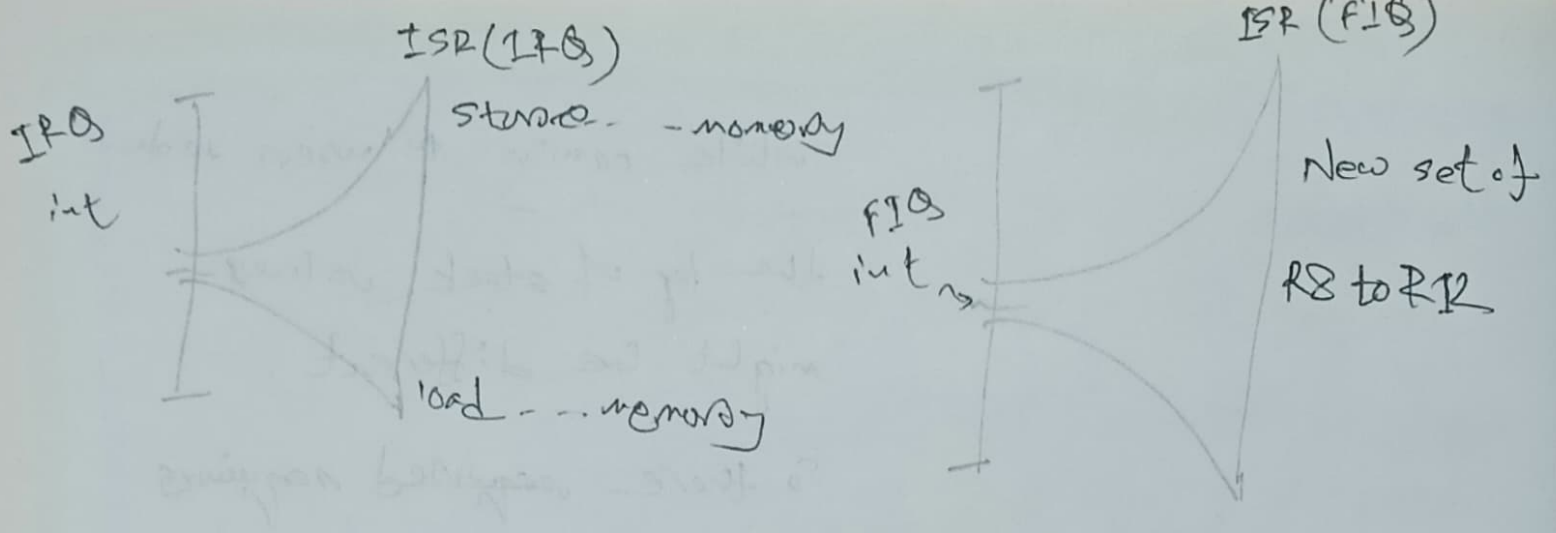 ISR (IRQ)
IRQ
int
store.. - memory
load - ... memory
ISR (FIQ)
FIQ
int
New set of
R8 to R12